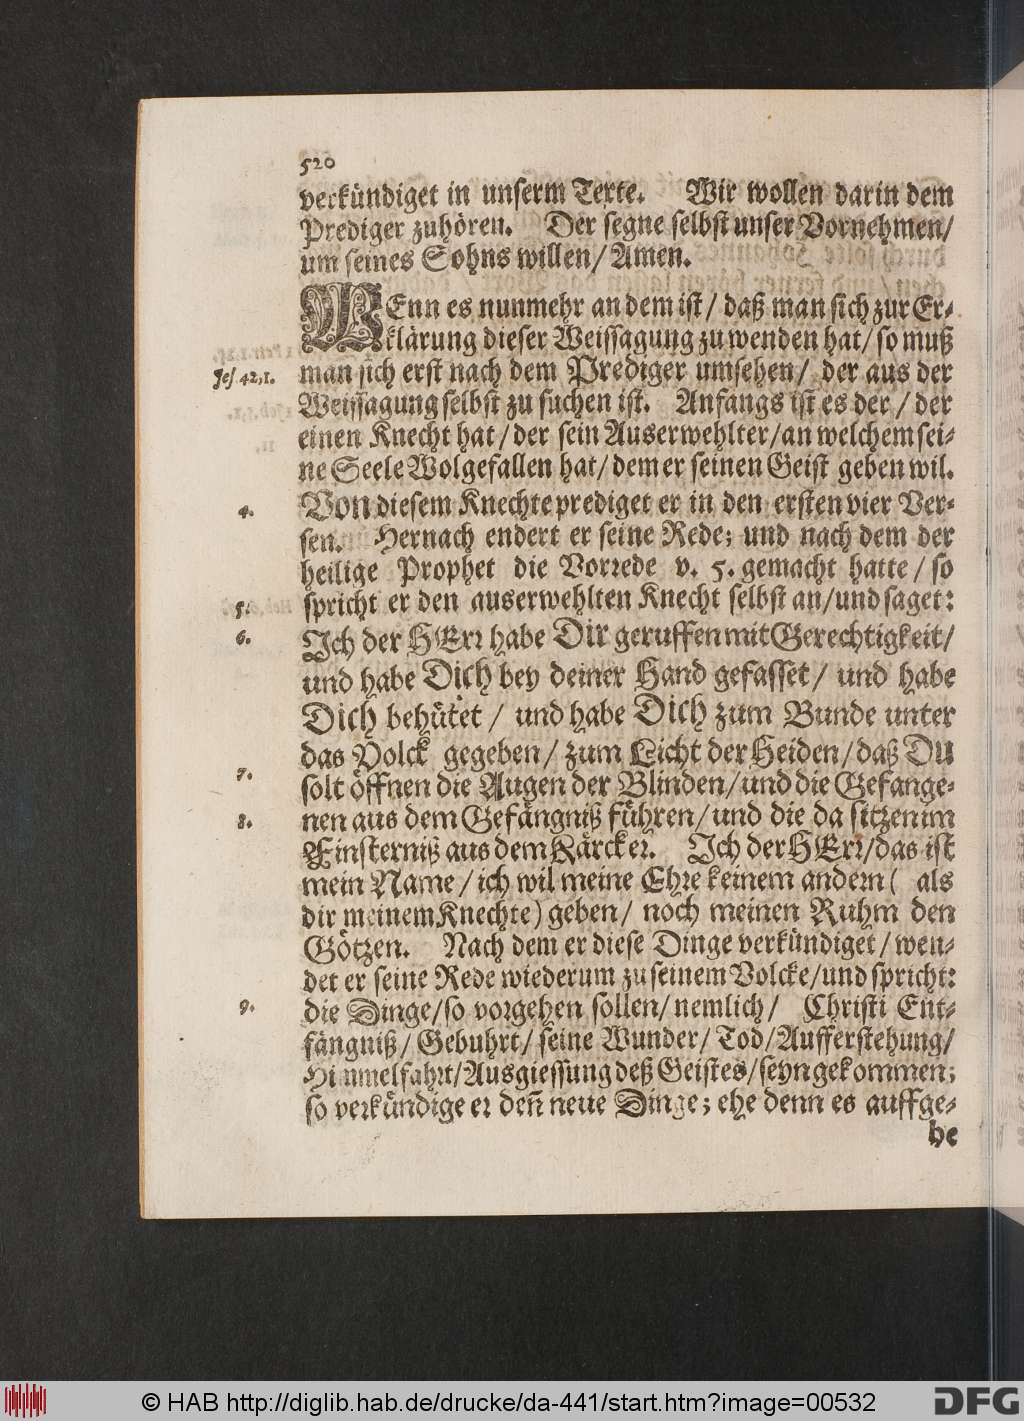 520
verkündiget in unserm Texte. Wir wollen darin dem
Prediger zuhören. Der segne selbst unser Vornehmen/
um seines Sohns willen/ Amen.
WEnn es nunmehr an dem ist/ daß man sich zur Er-
klärung dieser Weissagung zu wenden hat/ so muß
Jes 42,1.
man sich erst nach dem Prediger umsehen/ der aus der
Weissagung selbst zu suchen ist. Anfangs ist es der/ der
einen Knecht hat/ der sein Auserwehlter/ an welchem sei-
ne Seele Wolgefallen hat/ dem er seinen Geist geben wil.
4.
Von diesem Knechte prediget er in den ersten vier Ver-
sen. Hernach endert er seine Rede; und nach dem der
heilige Prophet die Vorrede v. 5. gemacht hatte/ so
5.
spricht er den auserwehlten Knecht selbst an/ und saget:
6.
Ich der HErr habe Dir geruffen mit Gerechtigkeit/
und habe Dich bey deiner Hand gefasset/ und habe
Dich behütet/ und habe Dich zum Bunde unter
das Volck gegeben/ zum Licht der Heiden/ daß Du
7.
solt öffnen die Augen der Blinden/ und die Gefange-
8.
nen aus dem Gefängniß führen/ und die da sitzen im
Finsterniß aus dem Kärcker. Ich der HErr/ das ist
mein Name/ ich wil meine Ehre keinem andern ( als
dir meinem Knechte) geben/ noch meinen Ruhm den
Götzen. Nach dem er diese Dinge verkündiget/ wen-
det er seine Rede wiederum zu seinem Volcke/ und spricht:
9.
die Dinge/ so vorgehen sollen/ nemlich/ Christi Ent-
fängniß/ Gebuhrt/ seine Wunder/ Tod/ Aufferstehung/
Himmelfahrt/ Ausgiessung deß Geistes/ seyn gekommen;
so verkündige er den̄ neue Dinge; ehe denn es auffge-
he
© HAB http://diglib.hab.de/drucke/da-441/start.htm?image=00532
DFG